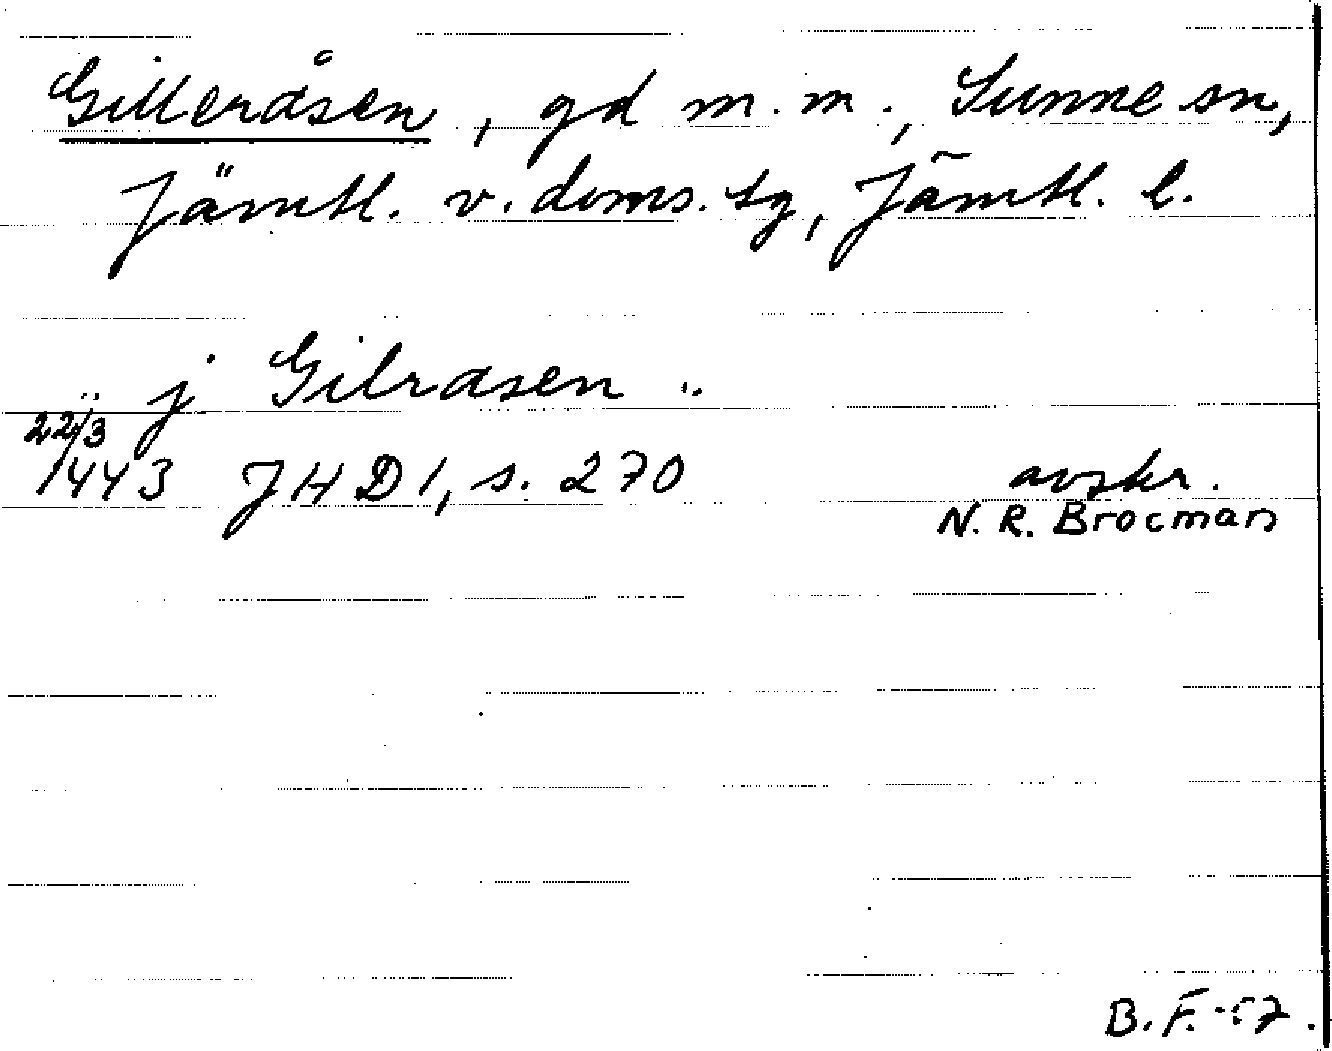 Gilleråsen, gd m.m., Sunne sn,
Jämtl. v. doms. tg, Jämtl. l.
.. j Gilrasen ..
22/3
1443 JHD 1, s. 270 avskr.
N. R. Brocman
B. F. -57.